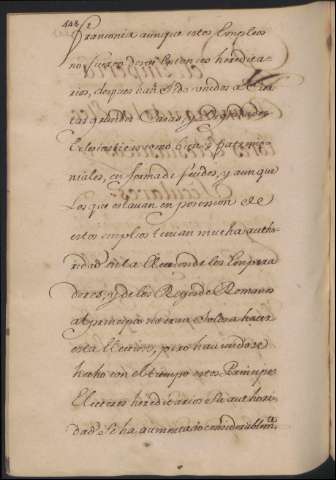 448
Franconia aunque estos Empleos
no fueron por entonces heredita-
rios, despues han sido unidos a Cier-
tas grandes Casas, y
Eclesiasticos como bienes patrimo-
niales, en forma de feudos, y aunque
Los que estauan en posesion de
estos empleos tenian mucha autho-
ridad en la eleccion de los Empera-
dores, y de los Reyes de Romanos
al principio no eran solos a hacer
esta Eleccion, pero hauiendose
hecho con el tiempo estos Principes
Electores hereditarios su authori-
dad se ha aumentado considerablemte